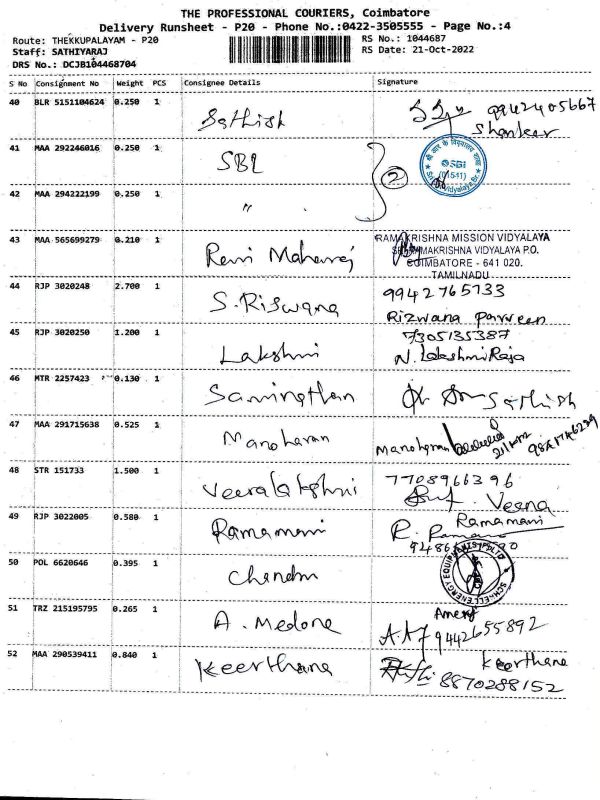 THE PROFESSIONAL COURIERS, Coimbatore
Delivery Runsheet - P20 - Phone No.:0422-3505555 - Page No.:4
Route: THEKKUPALAYAM - P20
RS No.: 1044687
Staff: SATHIYARAJ
RS Date: 21-Oct-2022
DRS No.: DCJB104468704
S No Consignment No Weight PCS Consignee Details Signature
40 BLR 5151104624 0.250 1 Sathish 9942405667
Shankar
41 MAA 292246016 0.250 1 SBI 2
SBI
(01541)
42 MAA 294222199 0.250 1 "
43 MAA 565699279 0.210 1 Ravi Maharaj
RAMAKRISHNA MISSION VIDYALAYA
SRI RAMAKRISHNA VIDYALAYA P.O.
COIMBATORE - 641 020.
TAMILNADU
44 RJP 3020248 2.700 1 S. Riswana 9942765133
Rizwana Parveen
45 RJP 3020250 1.200 1 Lakshmi 7305135387
N. Lakshmi Raja
46 MTR 2257423 0.130 1 Saminathan Sathish
47 MAA 291715638 0.525 1 Manoharan Manoharan
48 STR 151733 1.500 1 Veeralakshmi 7708966396
Veena
49 RJP 3022005 0.580 1 Ramamani Ramamani
50 POL 6620646 0.395 1 Chandru
51 TRZ 215195795 0.265 1 A. Medona
9442655892
52 MAA 290539411 0.840 1 Keerthana Keerthana
8870288152